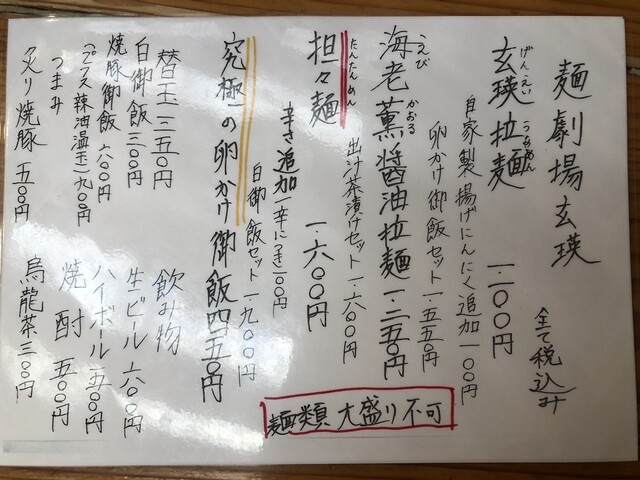 麺劇場玄瑛
全て税込み
げんえい らあめん
玄瑛拉麺 一二〇〇円
自家製揚げにんにく追加 一〇〇円
卵かけ御飯セット 一.五五〇円
えび かおる
海老薫醤油拉麺 一.三五〇円
出汁茶漬けセット 一.六〇〇円
たんたんめん
担々麺 一.六〇〇円
辛さ追加(一辛につき)一〇〇円
白御飯セット 一.九〇〇円
究極の卵かけ御飯 四五〇円
麺類大盛り不可
替玉 二五〇円
白御飯 三〇〇円
焼豚御飯 六〇〇円
(プラス辣油温玉)九〇〇円
つまみ
炙り焼豚 五〇〇円
飲み物
生ビール 六〇〇円
ハイボール 五〇〇円
焼酎 五〇〇円
烏龍茶 三〇〇円